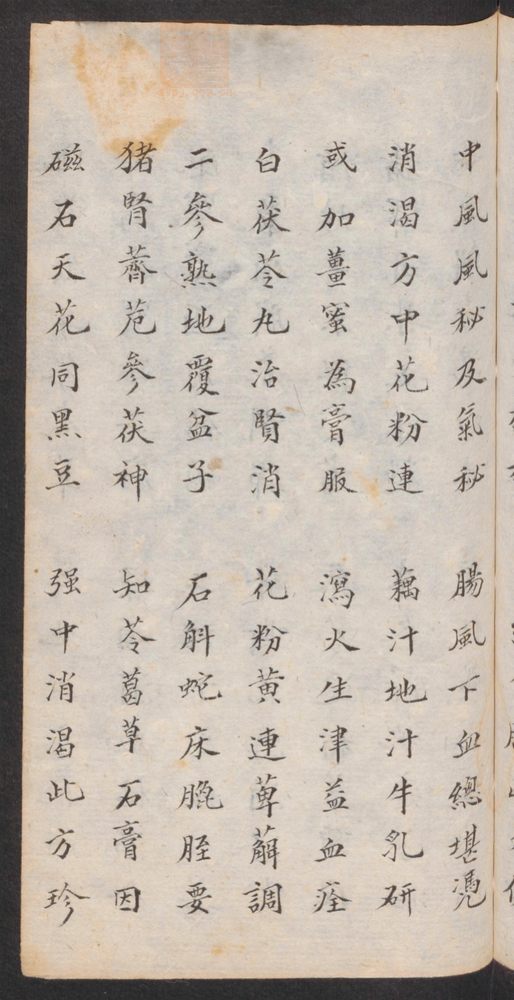 中風風秘及氣秘　腸風下血總堪凴
消渴方中花粉連　藕汁地汁牛乳研
或加薑蜜為膏服　瀉火生津益血痊
白茯苓丸治賢消　花粉黄連萆薢調
二參熟地覆盆子　石斛蛇床膍胵要
猪腎薺苨參茯神　知苓葛草石膏因
磁石天花同黑豆　强中消渴此方珍